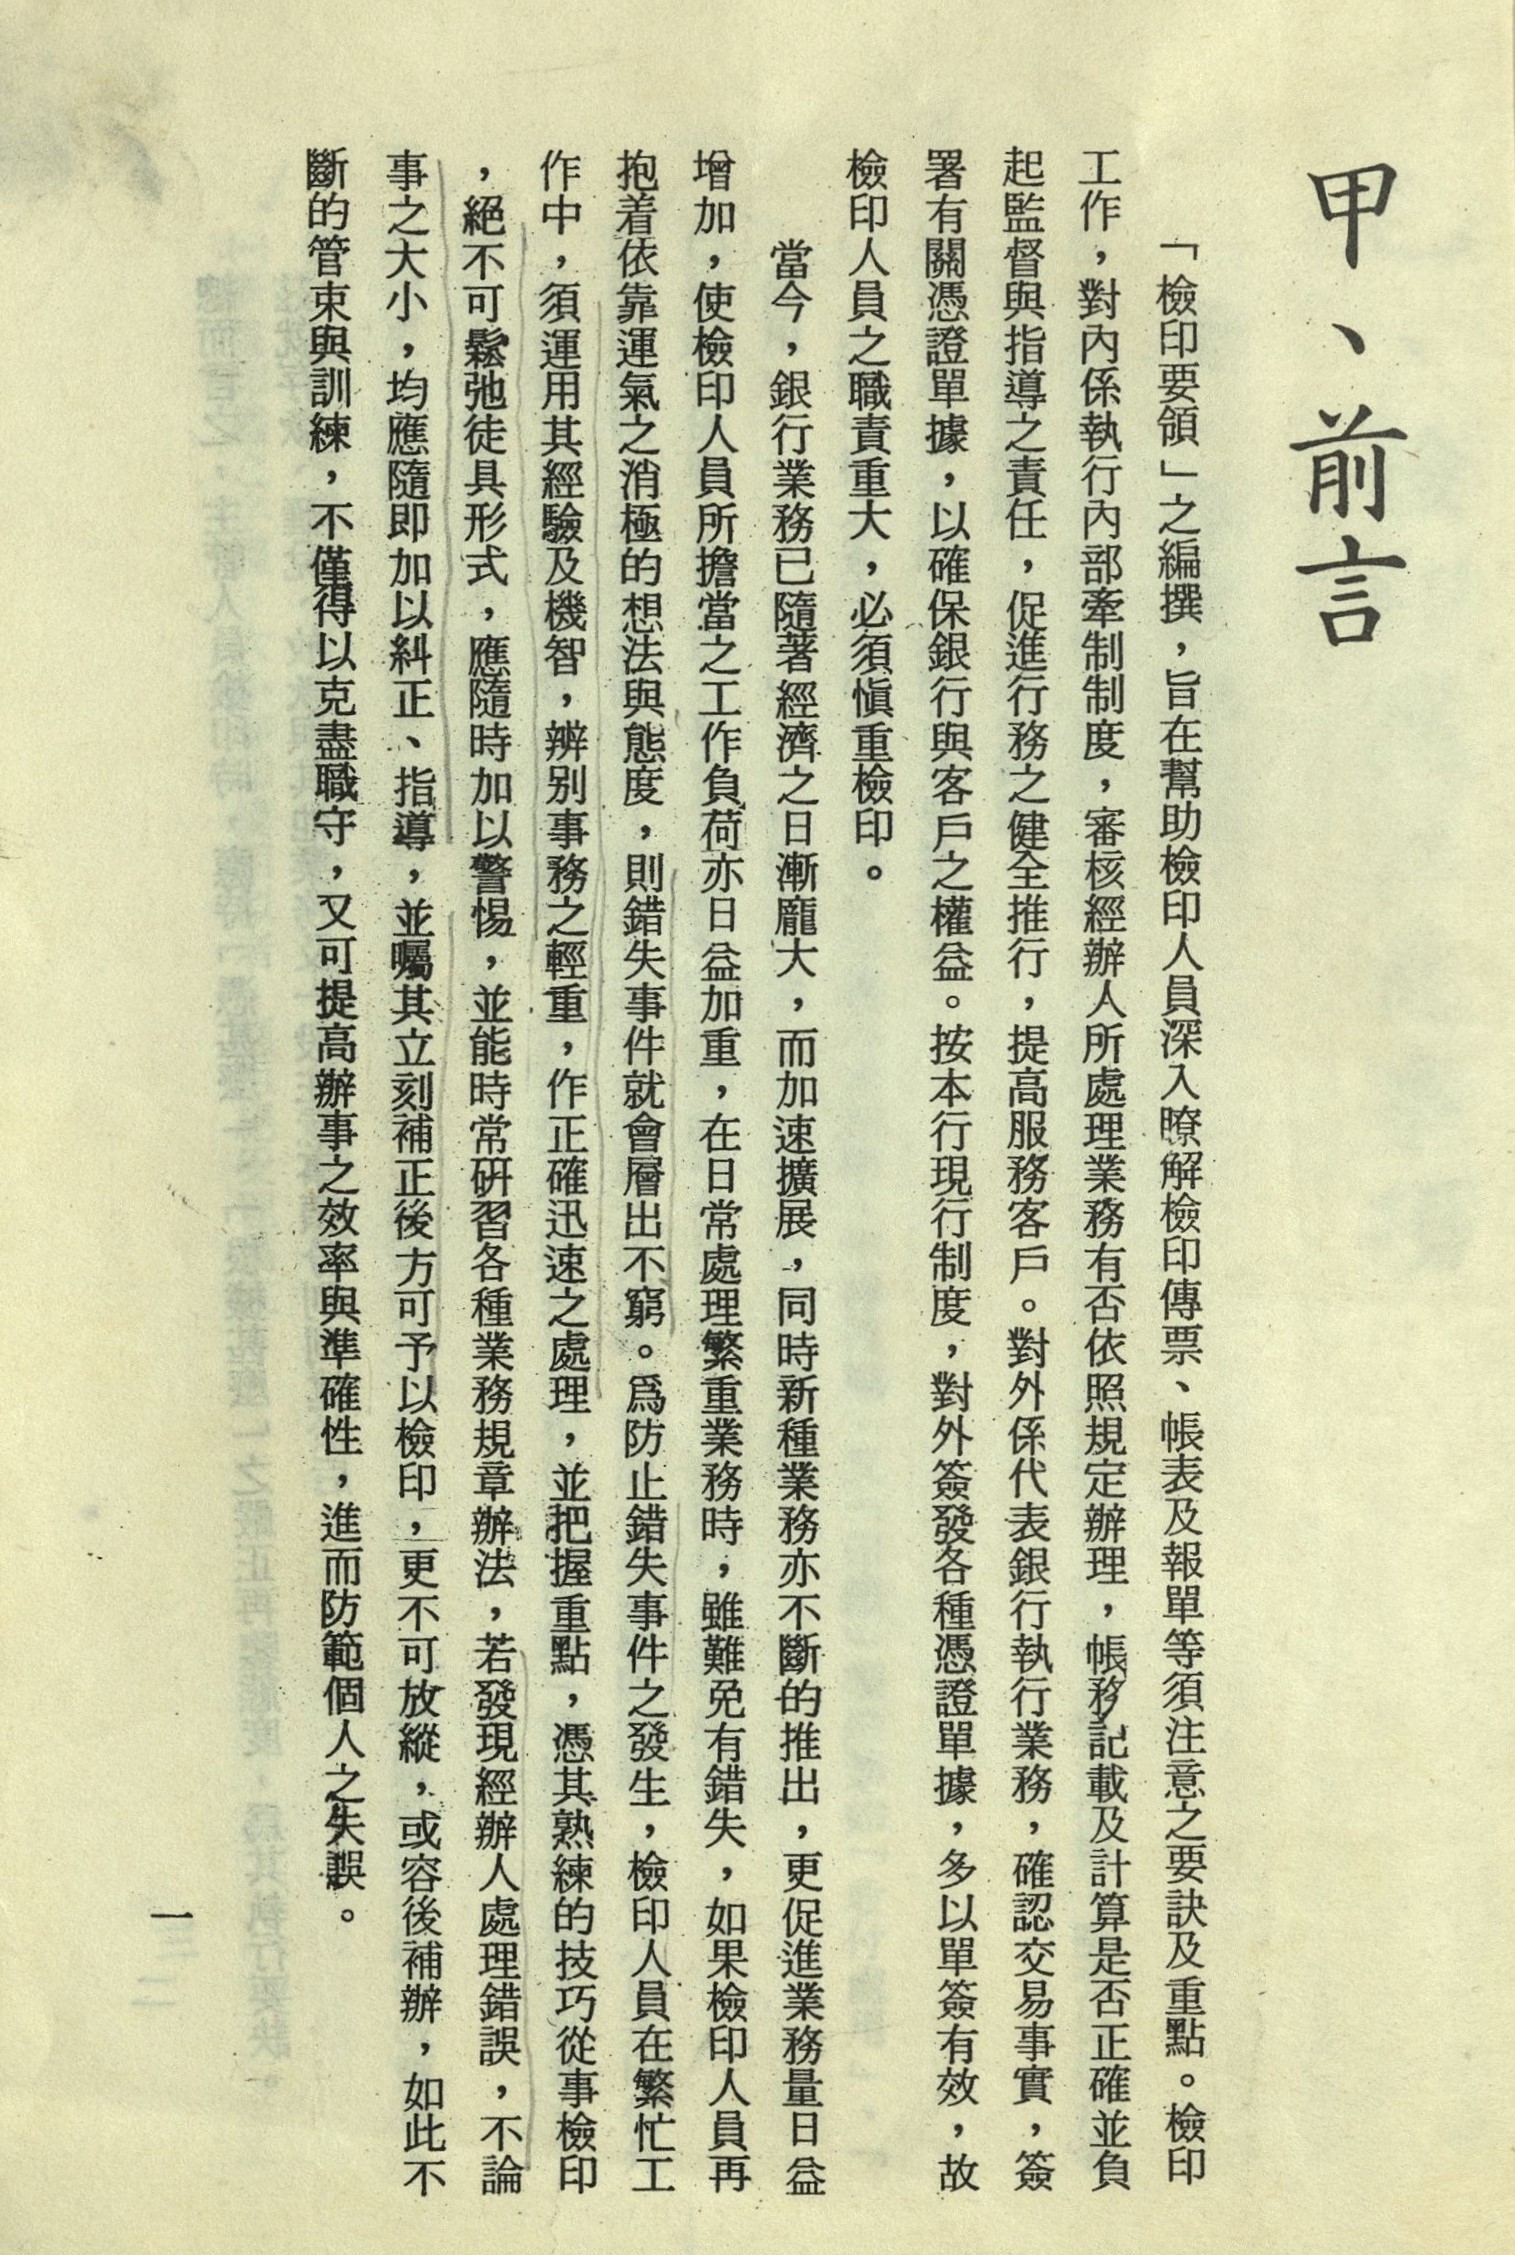 甲、前言
「檢印要領」之編撰，旨在幫助檢印人員深入瞭解檢印傳票、帳表及報單等須注意之要訣及重點。檢印
工作，對內係執行內部牽制制度，審核經辦人所處理業務有否依照規定辦理，帳務記載及計算是否正確並負
起監督與指導之責任，促進行務之健全推行，提高服務客戶。對外係代表銀行執行業務，確認交易事實，簽
署有關憑證單據，以確保銀行與客戶之權益。按本行現行制度，對外簽發各種憑證單據，多以單簽有效，故
檢印人員之職責重大，必須愼重檢印。
當今，銀行業務已隨著經濟之日漸龐大，而加速擴展，同時新種業務亦不斷的推出，更促進業務量日益
增加，使檢印人員所擔當之工作負荷亦日益加重，在日常處理繁重業務時，雖難免有錯失，如果檢印人員再
抱着依靠運氣之消極的想法與態度，則錯失事件就會層出不窮。爲防止錯失事件之發生，檢印人員在繁忙工
作中，須運用其經驗及機智，辨別事務之輕重，作正確迅速之處理，並把握重點，憑其熟練的技巧從事檢印
，絕不可鬆弛徒具形式，應隨時加以警惕，並能時常研習各種業務規章辦法，若發現經辦人處理錯誤，不論
事之大小，均應隨即加以糾正、指導，並囑其立刻補正後方可予以檢印，更不可放縱，或容後補辦，如此不
斷的管束與訓練，不僅得以克盡職守，又可提高辦事之效率與準確性，進而防範個人之失誤。
一